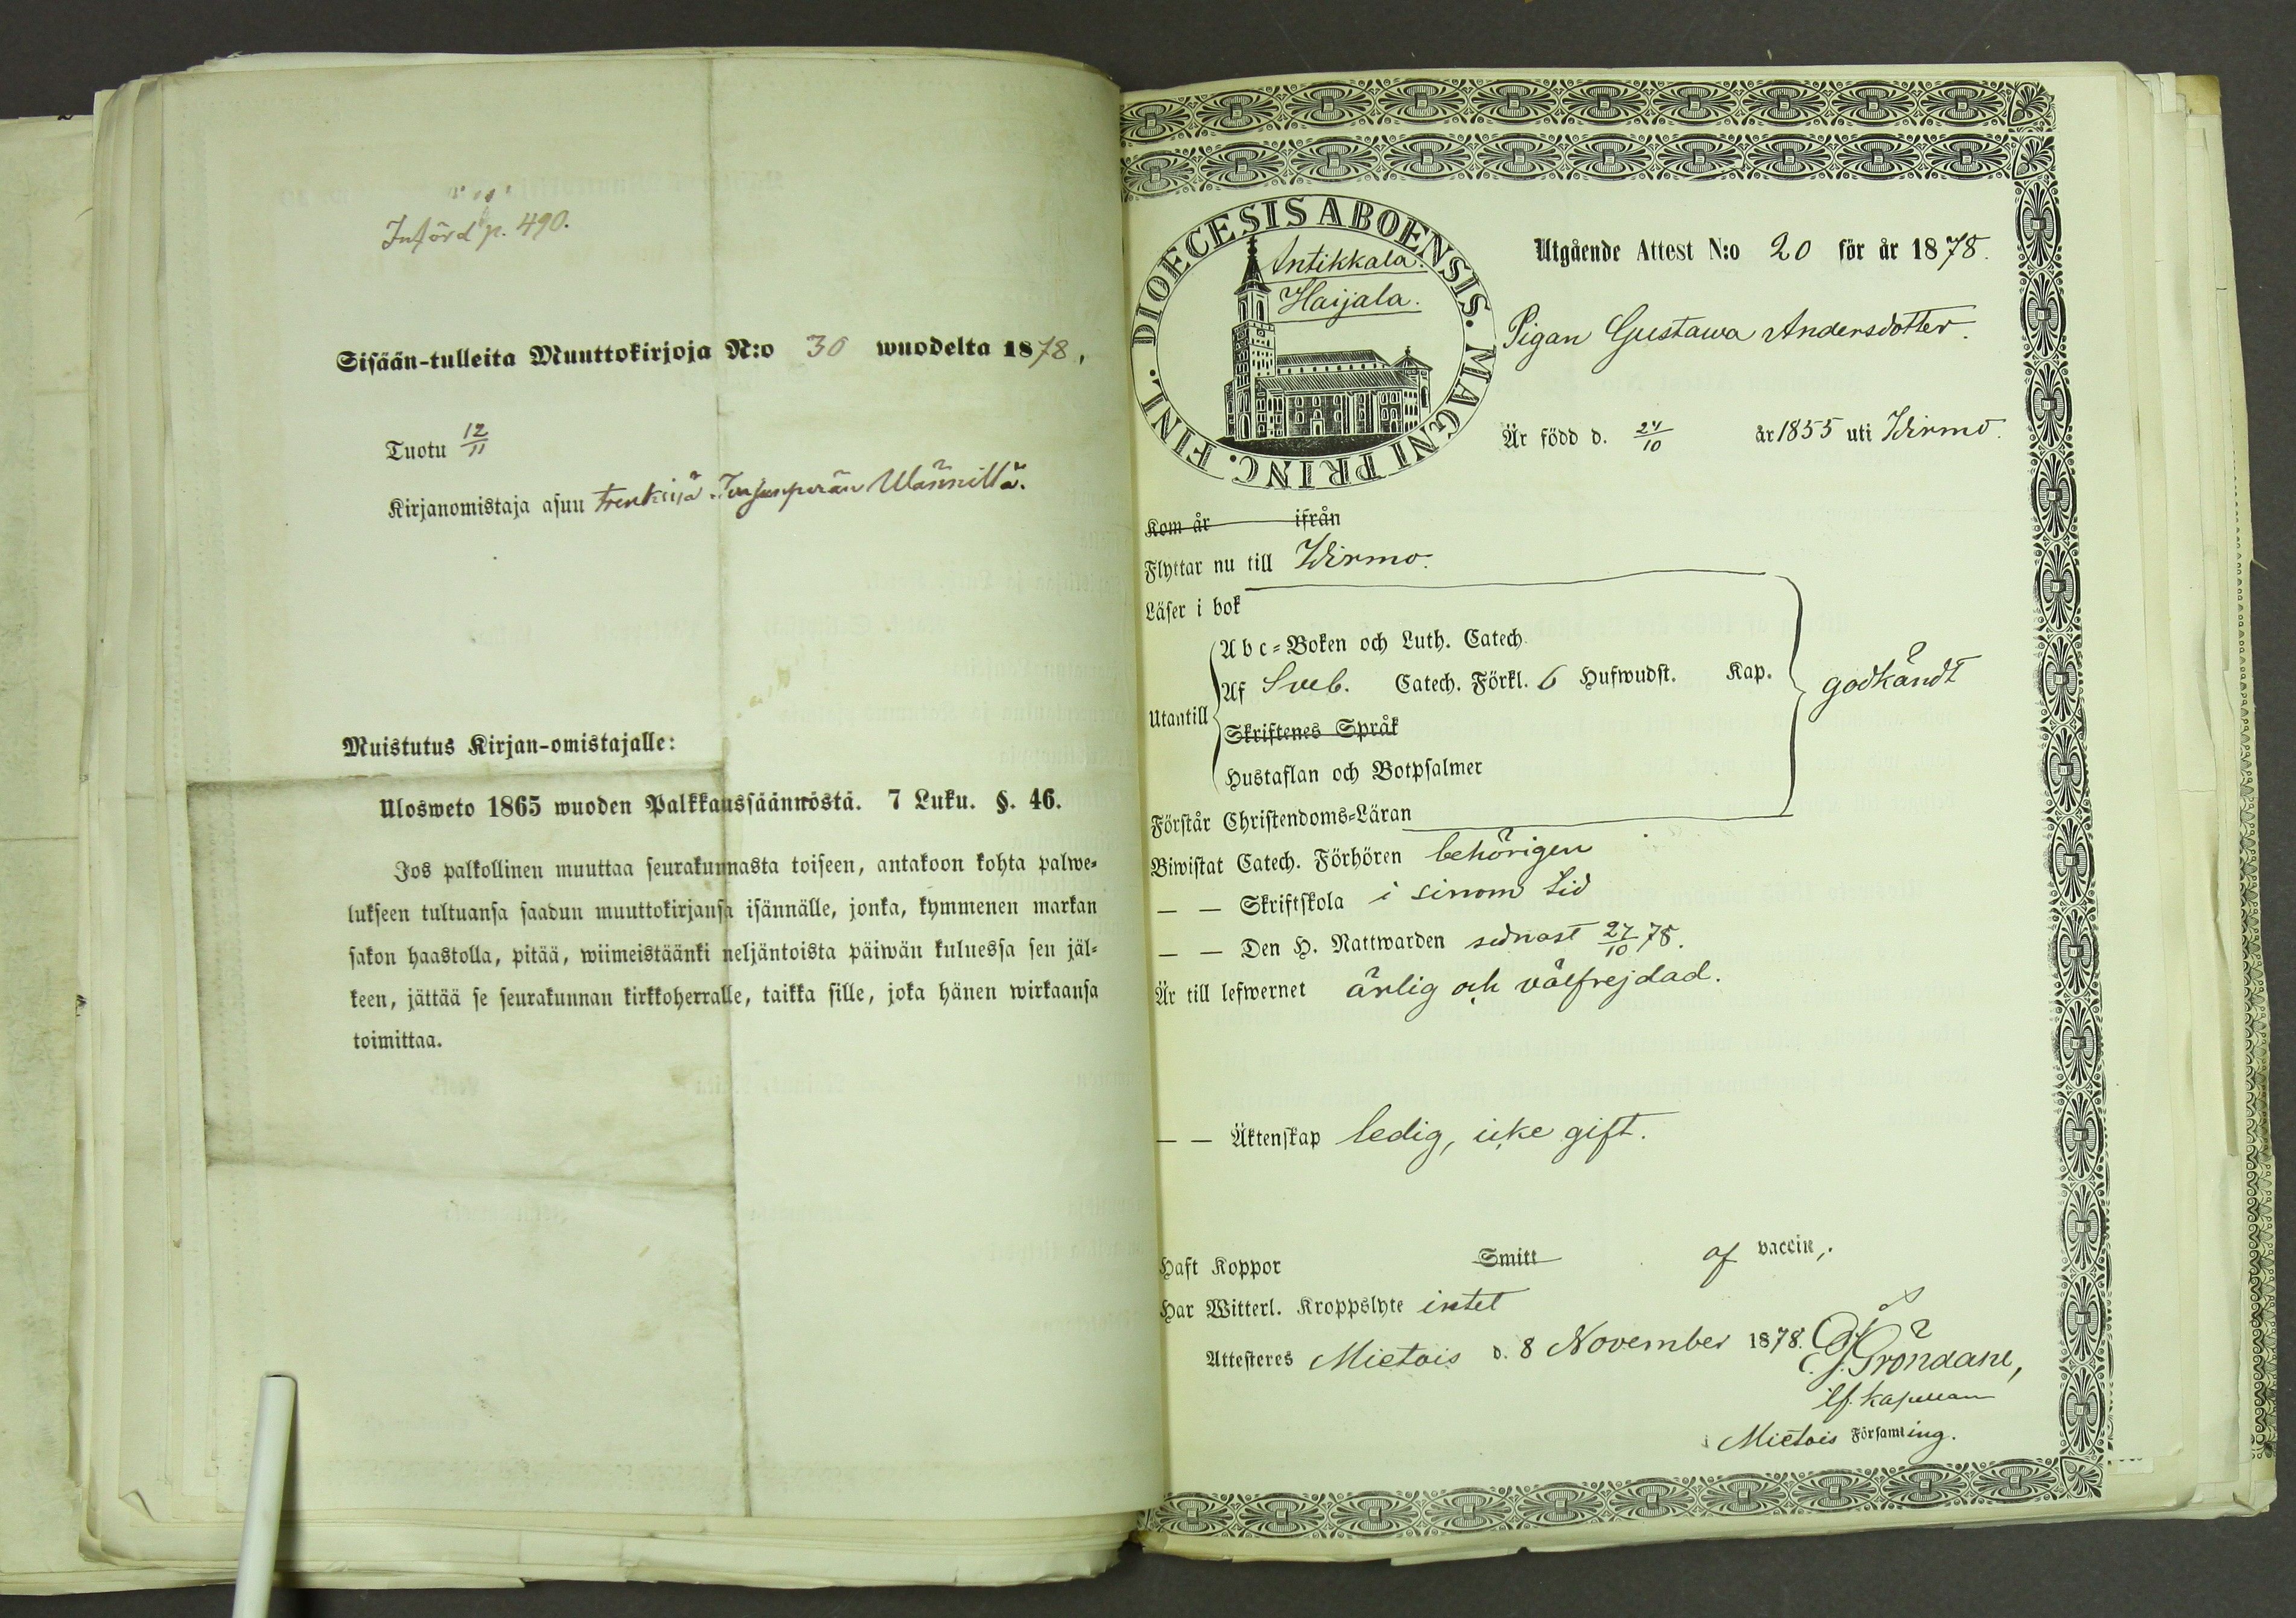 Införd p. 490.
Sisään-tulleita Muuttokirjoja N:o 30 wuodelta 1878,
Tuotu 12/11
Kirjanomistaja asuu trenkinä Männillä.
Muistutus Kirjan-omistajalle:
Ulosweto 1865 wuoden Palkkaussäännöstä. 7 Luku. §. 46.
Jos palkollinen muuttaa seurakunnasta toiseen, antakoon kohta palwe-
lukseen tultuansa saadun muuttokirjansa isännälle, jonka, kymmenen markan
sakon haastolla, pitää, wiimeistäänki neljäntoista päiwän kuluessa sen jäl-
keen, jättää se seurakunnan kirkkoherralle, taikka sille, joka hänen wirkaansa
toimittaa.
DIOECESIS ABOENSIS. MAGNI PRINC. FINL.
Antikkala.
Haijala.
Utgående Attest N:o 20 för år 1878.
Pigan Gustawa Andersdotter.
Är född d. 24/10 år 1855 uti Wirmo.
Kom år ifrån
Flyttar nu till Wirmo.
Läser i bok
Utantill
Abc-Boken och Luth. Catech.
Af Sveb. Catech. Förkl. 6 Hufwudst. Kap.
Skriftenes Språk
Hustaflan och Botpsalmer
godkändt
Förstår Christendoms-Läran
Biwistat Catech. Förhören behörigen
— — Skriftskola i sinom tid
— — Den H. Nattwarden sednast 27/10 78.
Är till lefwernet ärlig och välfrejdad.
— — Äktenskap ledig, icke gift.
Haft Koppor Smitt af vaccin,.
Har Witterl. Kroppslyte intet
Attesteres Mietois d. 8 November 1878. Gröndahl,
kapellan
Mietois Församling.